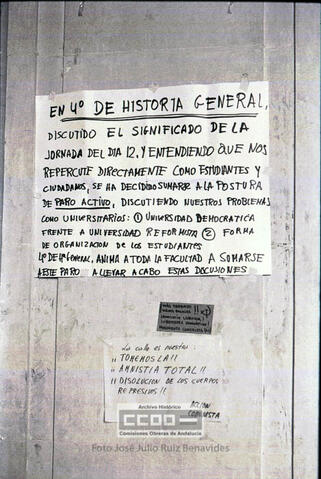 EN 4º DE HISTORIA GENERAL,
DISCUTIDO EL SIGNIFICADO DE LA
JORNADA DEL DIA 12, Y ENTENDIENDO QUE NOS
REPERCUTE DIRECTAMENTE COMO ESTUDIANTES Y
CIUDADANOS, SE HA DECIDIDO SUMARSE A LA POSTURA
DE PARO ACTIVO, DISCUTIENDO NUESTROS PROBLEMAS
COMO UNIVERSITARIOS: ① UNIVERSIDAD DEMOCRATICA
FRENTE A UNIVERSIDAD REFORMISTA ② FORMA
DE ORGANIZACION DE LOS ESTUDIANTES
ANIMA A TODA LA FACULTAD A SUMARSE
A ESTE PARO A LLEVAR A CABO ESTAS DISCUSIONES
La calle es nuestra:
¡¡TOMEMOSLA!!
¡¡AMNISTIA TOTAL!!
¡¡DISOLUCION DE LOS CUERPOS
REPRESIVOS!!
ACCION
COMUNISTA
Archivo Histórico
CCOO
Comisiones Obreras de Andalucía
Foto José Julio Ruiz Benavides